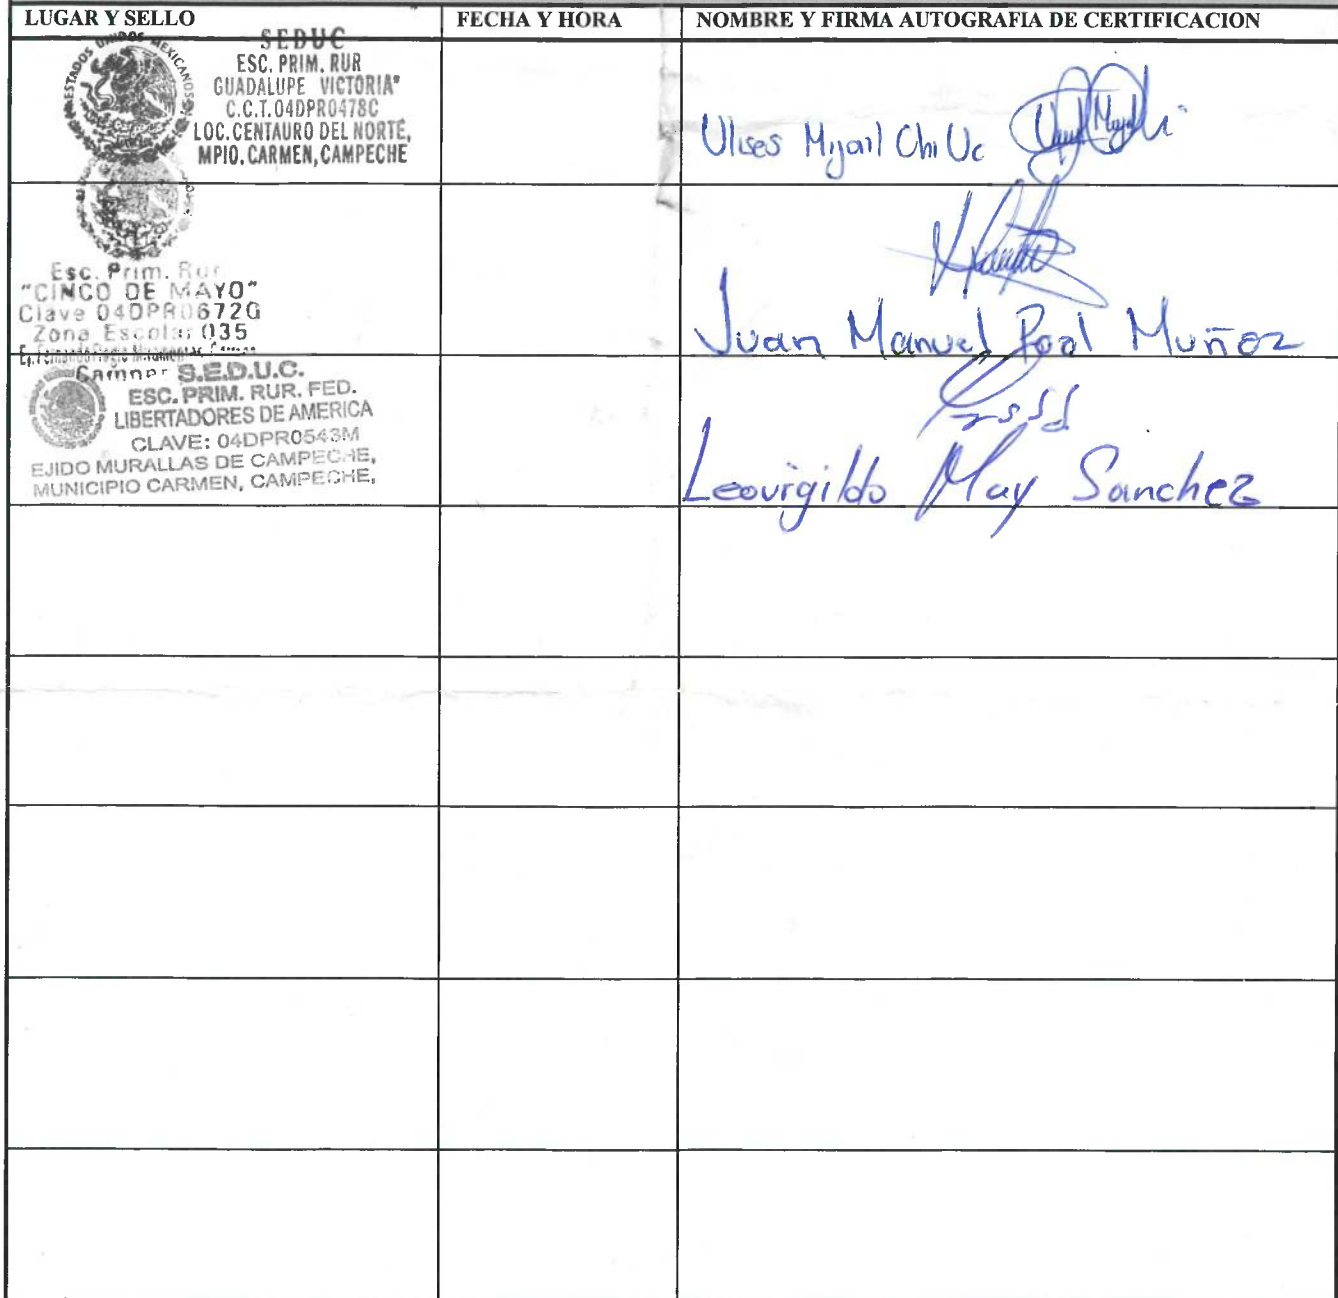 LUGAR Y SELLO
FECHA Y HORA
NOMBRE Y FIRMA AUTOGRAFIA DE CERTIFICACION
ESTADOS UNIDOS MEXICANOS
SEDUC
ESC. PRIM. RUR
GUADALUPE VICTORIA"
C.C.T.04DPR0478C
LOC.CENTAURO DEL NORTE,
MPIO.CARMEN,CAMPECHE
Ulises Mijail Chi Uc
Esc. Prim. Rur.
"CINCO DE MAYO"
Clave 04DPR0672G
Zona Escolar 035
Juan Manuel Pool Muñoz
S.E.D.U.C.
ESC. PRIM. RUR. FED.
LIBERTADORES DE AMERICA
CLAVE: 04DPR0543M
EJIDO MURALLAS DE CAMPECHE,
MUNICIPIO CARMEN, CAMPECHE,
Leovigildo May Sanchez